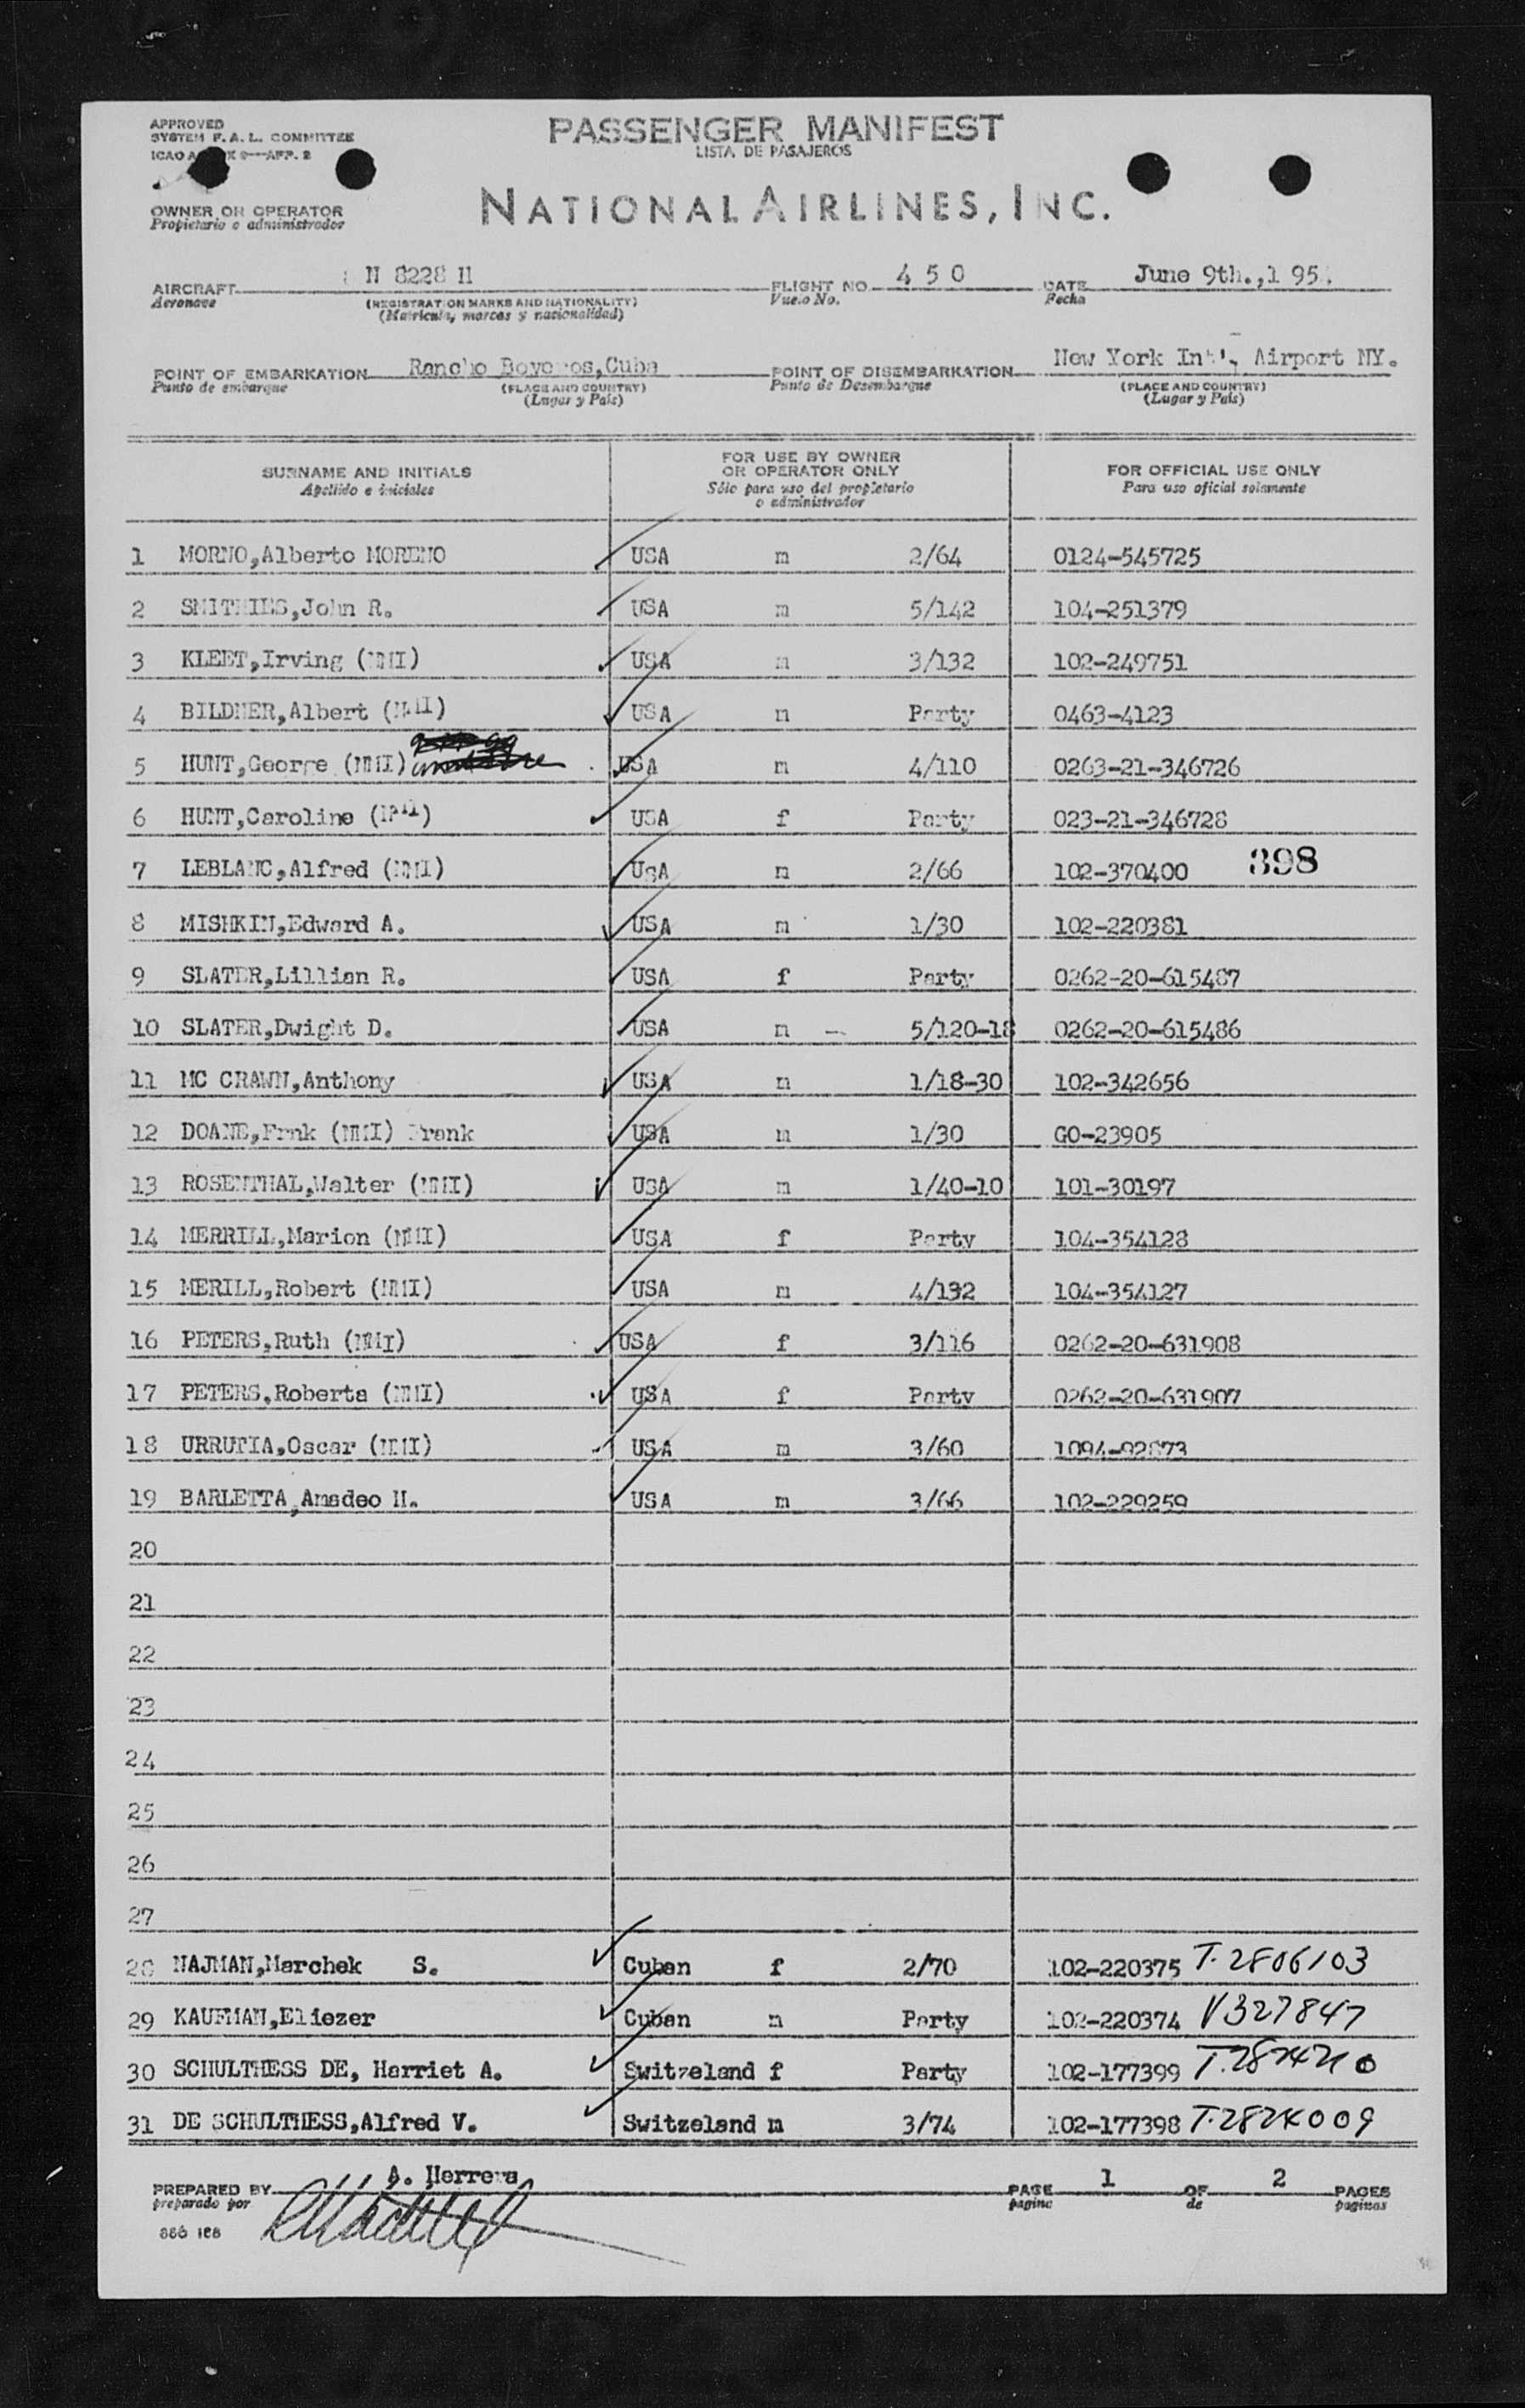 APPROVED
SYSTEM F. A. L. COMMITTEE
ICAO 9—APP. 2
PASSENGER MANIFEST
LISTA DE PASAJEROS
NATIONAL AIRLINES, INC.
OWNER OR OPERATOR
Propietario o administrador
AIRCRAFT N 8228 H FLIGHT NO. 4 5 0 DATE June 9th.,1 95
Aeronave (REGISTRATION MARKS AND NATIONALITY) Vuelo No. Fecha
(Matricula, marcas y nacionalidad)
POINT OF EMBARKATION Rancho Boyeros,Cuba POINT OF DISEMBARKATION New York Int'l, Airport NY.
Punto de embarque (PLACE AND COUNTRY) Punto de Desembarque (PLACE AND COUNTRY)
(Lugar y País) (Lugar y País)
SURNAME AND INITIALS FOR USE BY OWNER OR OPERATOR ONLY FOR OFFICIAL USE ONLY
Apellido e iniciales Sólo para uso del propietario o administrador Para uso oficial solamente
1 MORNO,Alberto MORENO USA m 2/64 0124-545725
2 SMITHIES,John R. USA m 5/142 104-251379
3 KLEET,Irving (NMI) USA m 3/132 102-249751
4 BILDNER,Albert (NMI) USA m Party 0463-4123
5 HUNT,George (NMI) USA m 4/110 0263-21-346726
6 HUNT,Caroline (NMI) USA f Party 023-21-346728
7 LEBLANC,Alfred (NMI) UsA m 2/66 102-370400 398
8 MISHKIN,Edward A. USA m 1/30 102-220381
9 SLATER,Lillian R. USA f Party 0262-20-615487
10 SLATER,Dwight D. USA m — 5/120-18 0262-20-615486
11 MC CRAWN,Anthony USA m 1/18-30 102-342656
12 DOANE,Frnk (NMI) Frank USA m 1/30 GO-23905
13 ROSENTHAL,Walter (NMI) USA m 1/40-10 101-30197
14 MERRILL,Marion (NMI) USA f Party 104-354128
15 MERILL,Robert (NMI) USA m 4/132 104-354127
16 PETERS,Ruth (NMI) USA f 3/116 0262-20-631908
17 PETERS,Roberta (NMI) USA f Party 0262-20-631907
18 URRUTIA,Oscar (NMI) USA m 3/60 1094-92873
19 BARLETTA,Amadeo H. USA m 3/66 102-229259
20
21
22
23
24
25
26
27
28 NAJMAN,Marchek S. Cuban f 2/70 102-220375 T-2806103
29 KAUFMAN,Eliezer Cuban m Party 102-220374 V327847
30 SCHULTHESS DE, Harriet A. Switzeland f Party 102-177399
31 DE SCHULTHESS,Alfred V. Switzeland m 3/74 102-177398 T-2824009
PREPARED BY A. Herrera PAGE 1 OF 2 PAGES
preparado por pagina de paginas
886 168